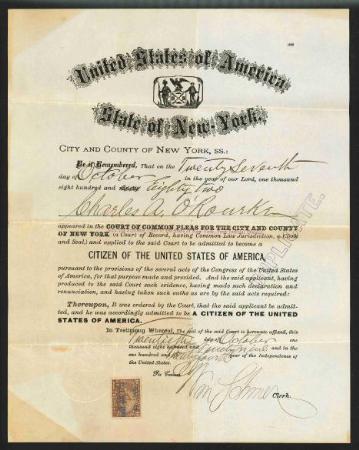 United States of America
State of New-York.
CITY AND COUNTY OF NEW YORK, SS.:
Be it Remembered, That on the Twenty Seventh
day of October in the year of our Lord, one thousand
eight hundred and Eighty two
Charles A. O'Rourke
appeared in the COURT OF COMMON PLEAS FOR THE CITY AND COUNTY
OF NEW YORK (a Court of Record, having Common Law Jurisdiction, a Clerk
and Seal,) and applied to the said Court to be admitted to become a
CITIZEN OF THE UNITED STATES OF AMERICA,
pursuant to the provisions of the several acts of the Congress of the United States
of America, for that purpose made and provided. And the said applicant, having
produced to the said Court such evidence, having made such declaration and
renunciation, and having taken such oaths as are by the said acts required:
Thereupon, It was ordered by the Court, that the said applicant be admit-
ted, and he was accordingly admitted to be A CITIZEN OF THE UNITED
STATES OF AMERICA.
In Testimony Whereof, The seal of the said Court is hereunto affixed, this
day of October one
thousand eight hundred and and in the
one hundred and year of the Independence of
the United States.
By the Court.
Clerk.
DUPLICATE.